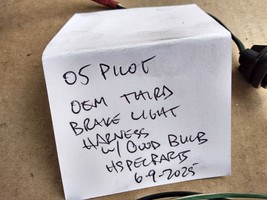 05 PILOT
OEM THIRD
BRAKE LIGHT
HARNESS
W/ GOOD BULB
HSPECPARTS
6-9-2025